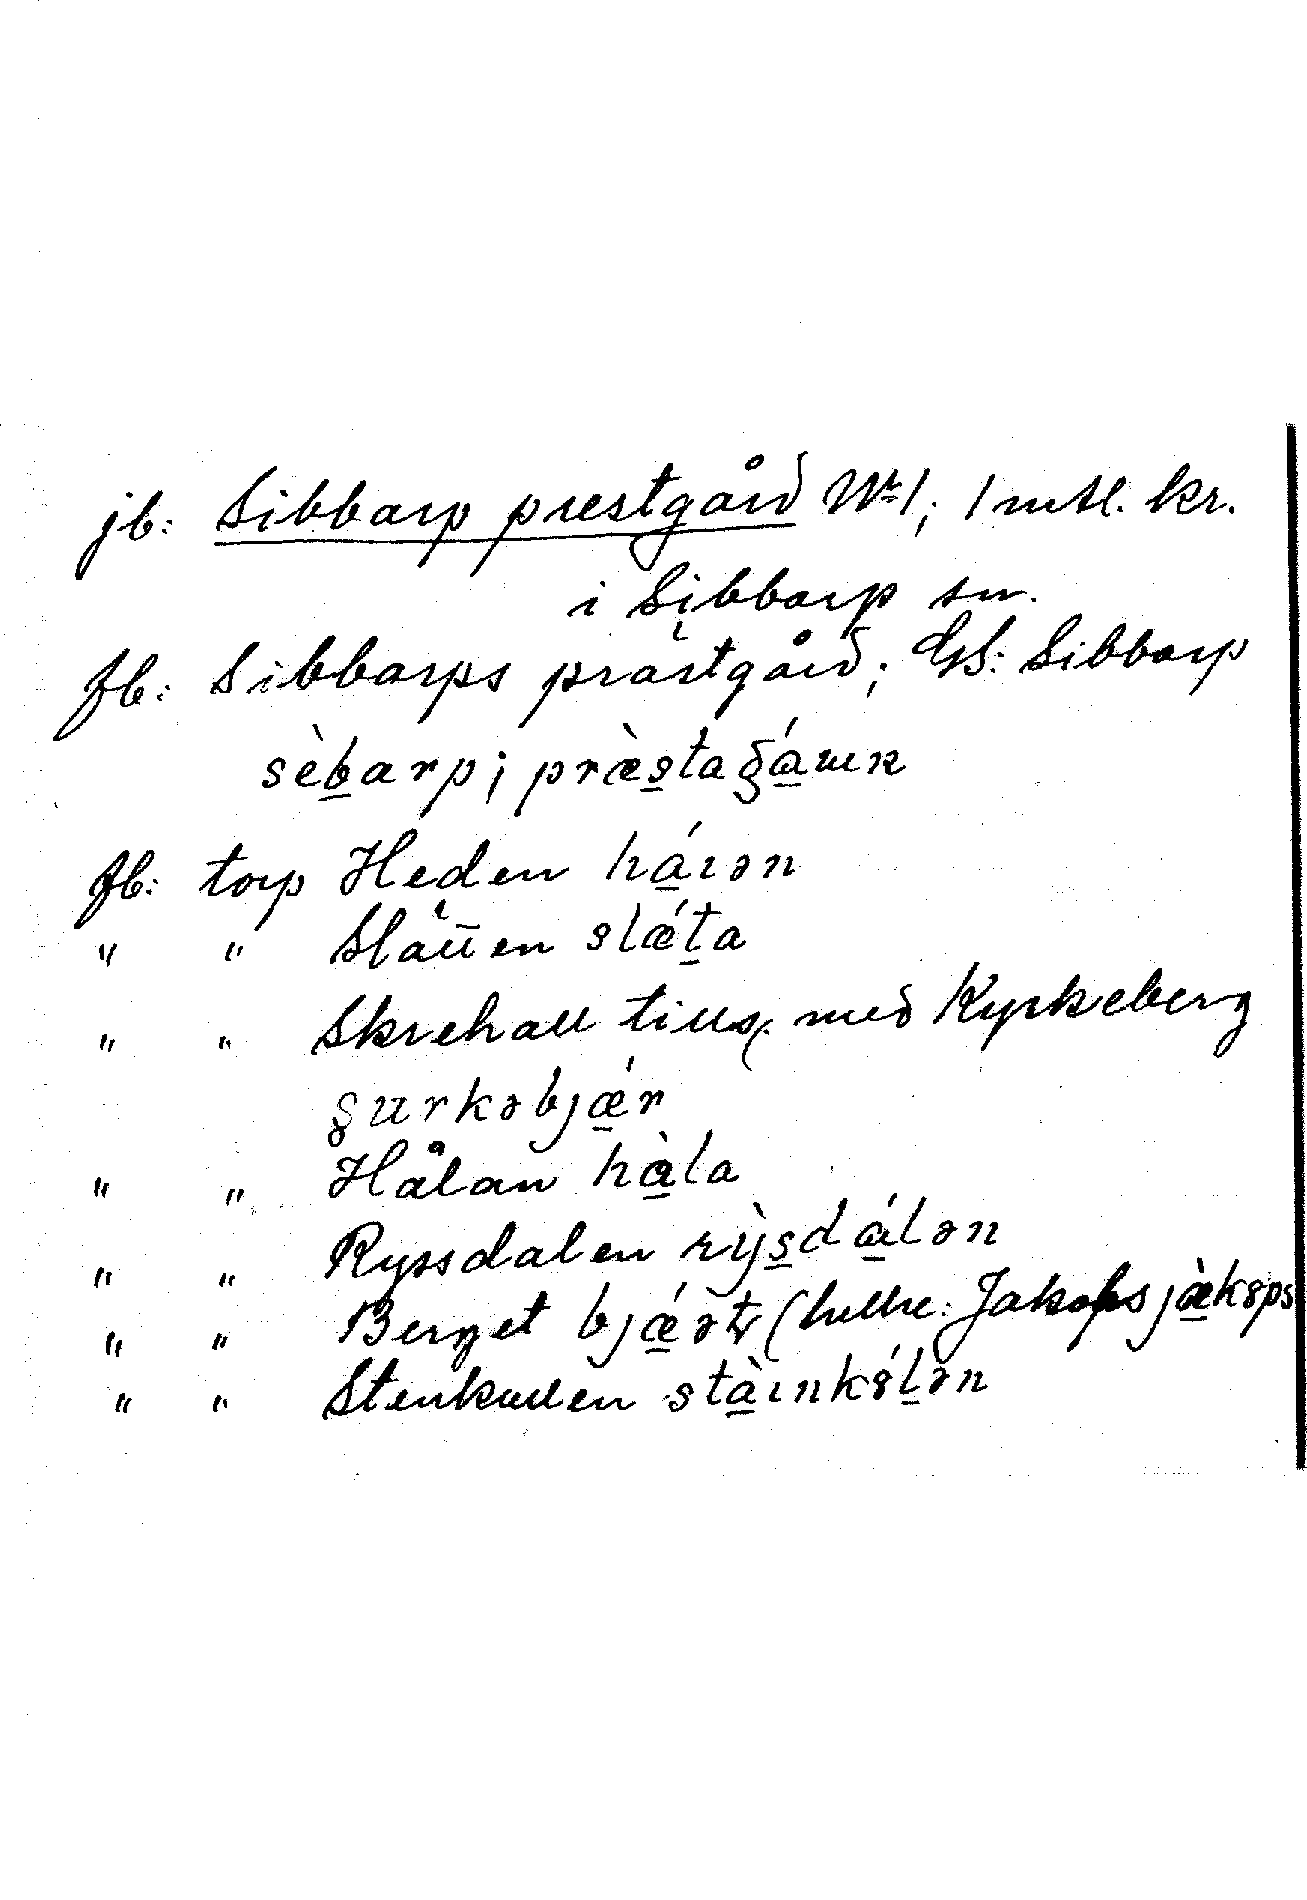 jb: Sibbarp prestgård Nr 1; 1 mtl. kr.
i Sibbarp sn.
Jb: Sibbarps prästgård; GS: Sibbarp
sèb̲arp; præ̀s̲taʒá̲ɯn
Jb: torp Heden há̲ıən
" " Slätten slǽt̲a
" " Skrehall tills. med Kyrkeberg
ʒurkəbjǽ̲r
" " Hålan hà̲la
" " Ryssdalen rỳs̲dá̲lən
" " Berget bjǽ̲rət (hellre: Jakobs jæ̲̀kɞps
" " Stenkullen stà̲ınkɞ́l̲ən